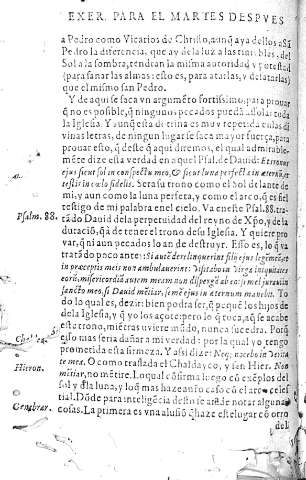 EXER. PARA EL MARTES DESPVES
a Pedro como Vicarios de Christo, aunq̃ aya dellos a Sã
Pedro la diferencia, que ay de la luz a las tinieblas, del
Sol a la sombra, tendran la misma autoridad y potestad
(para sanar las almas: esto es, para atarlas, y desatarlas)
que el mismo san Pedro.
Y de aqui se saca vn argumẽto fortissimo, para prouar
q̃ no es posible, q̃ ningunos pecados puedã assolar toda
la Iglesia. Y aunq̃ esta dotrina es muy repetida en las di
uinas letras, de ningun lugar se saca mayor fuerça, para
prouar esto, q̃ deste q̃ aqui diremos, el qual admirable-
mẽte dize esta verdad en aquel Psal. de Dauid: Et tronus
ejus sicut sol in conspectu meo, & sicut luna perfecta in æternũ, &
testis in cælo fidelis. Sera su trono como el Sol delante de
mi, y aun como la luna perfeta, y como el arco, q̃ es fiel
testigo de mi palabra en el cielo. Va en este Psal. 88. tra-
Psalm. 88.
tãdo Dauid de la perpetuidad del reyno de Xp̃o, y de la
duraciõ, q̃ à de tener el trono de su Iglesia. Y quiere pro
uar, q̃ ni aun pecados lo an de destruyr. Esso es, lo q̃ va
tratãdo poco ante: Si autẽ dereliquerint filij ejus legẽ meã, et
in præceptis meis non ambulauerint: Visitabo in Virga iniquitates
eorũ, misericordiã autem meam non dispergã ab eo: semel juraui in
sancto meo, si Dauid mẽtiar, semẽ ejus in æternum manebit. To
do lo qual es, dezir: bien podra ser, q̃ pequẽ los hijos de
de la Iglesia, y q̃ yo los açote: pero lo q̃ toca, aq̃ se acabe
esta trono, miẽtras uviere mũdo, nunca sucedra. Porq̃
esso mas seria dañar a mi verdad: por la qual yo tengo
prometida esta firmeza. Y assi dize: Neq; nocebo in Verita
te mea. O como traslada el Chaldayco, y sen Hier. Non
Hieron.
mẽtiar, no mẽtire. Lo qual cõfirma luego cõ exẽplos del
sol y dla luna, y lo q̃ mas haze anr̃o caso cõ el arco celes-
tial. Dõde para inteligẽcia desto se à de notar algunas
Genebrar.
cosas. La primera es vna alusiõ q̃ haze este lugar cõ otro
del